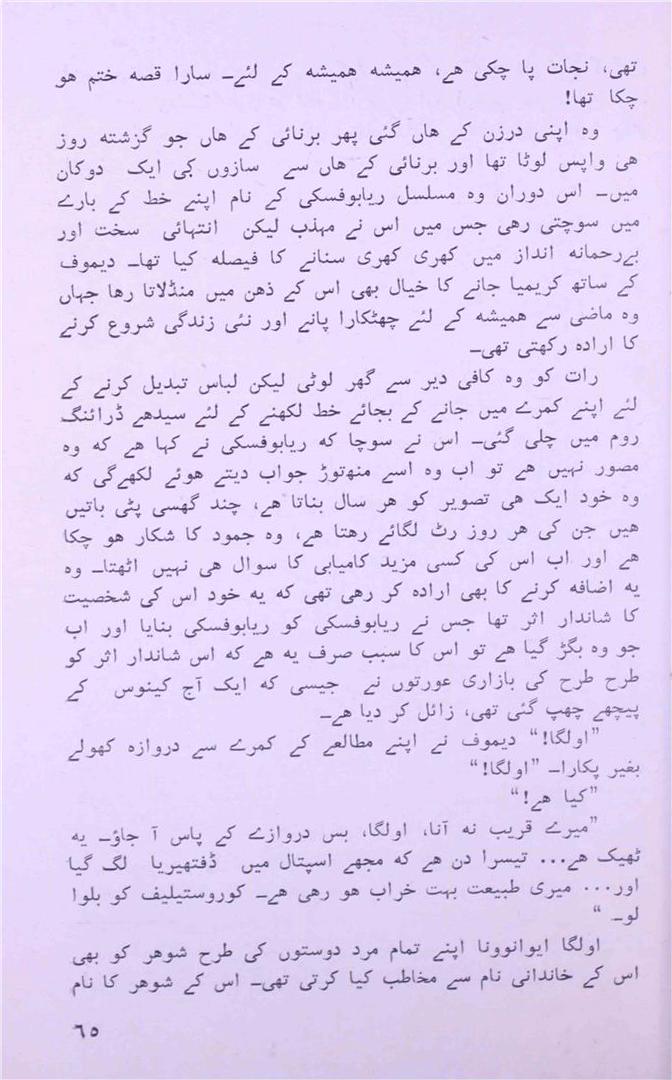 تھی، نجات پا چکی ھے، ھمیشہ ھمیشہ کے لئے۔ سارا قصہ ختم ھو
چکا تھا!
وہ اپنی درزن کے ھاں گئی پھر برنائی کے ھاں جو گزشتہ روز
ھی واپس لوٹا تھا اور برنائی کے ھاں سے سازوں کی ایک دوکان
میں۔ اس دوران وہ مسلسل ریابوفسکی کے نام اپنے خط کے بارے
میں سوچتی رھی جس میں اس نے مہذب لیکن انتہائی سخت اور
بےرحمانہ انداز میں کھری کھری سنانے کا فیصلہ کیا تھا۔ دیموف
کے ساتھ کریمیا جانے کا خیال بھی اس کے ذھن میں منڈلاتا رھا جہاں
وہ ماضی سے ھمیشہ کے لئے چھٹکارا پانے اور نئی زندگی شروع کرنے
کا ارادہ رکھتی تھی۔
رات کو وہ کافی دیر سے گھر لوٹی لیکن لباس تبدیل کرنے کے
لئے اپنے کمرے میں جانے کے بجائے خط لکھنے کے لئے سیدھے ڈرائنگ
روم میں چلی گئی۔ اس نے سوچا کہ ریابوفسکی نے کہا ھے کہ وہ
مصور نہیں ھے تو اب وہ اسے منھ‌توڑ جواب دیتے ھوئے لکھےگی کہ
وہ خود ایک ھی تصویر کو ھر سال بناتا ھے، چند گھسی پٹی باتیں
ھیں جن کی ھر روز رٹ لگائے رھتا ھے، وہ جمود کا شکار ھو چکا
ھے اور اب اس کی کسی مزید کامیابی کا سوال ھی نہیں اٹھتا۔ وہ
یہ اضافہ کرنے کا بھی ارادہ کر رھی تھی کہ یہ خود اس کی شخصیت
کا شاندار اثر تھا جس نے ریابوفسکی کو ریابوفسکی بنایا اور اب
جو وہ بگڑ گیا ھے تو اس کا سبب صرف یہ ھے کہ اس شاندار اثر کو
طرح طرح کی بازاری عورتوں نے جیسی کہ ایک آج کینوس کے
پیچھے چھپ گئی تھی، زائل کر دیا ھے۔
”اولگا!“ دیموف نے اپنے مطالعے کے کمرے سے دروازہ کھولے
بغیر پکارا۔ ”اولگا!“
”کیا ھے!“
”میرے قریب نہ آنا، اولگا، بس دروازے کے پاس آ جاؤ۔ یہ
ٹھیک ھے... تیسرا دن ھے کہ مجھے اسپتال میں ڈفتھیریا لگ گیا
اور... میری طبیعت بہت خراب ھو رھی ھے۔ کوروستیلیف کو بلوا
لو۔“
اولگا ایوانوونا اپنے تمام مرد دوستوں کی طرح شوھر کو بھی
اس کے خاندانی نام سے مخاطب کیا کرتی تھی۔ اس کے شوھر کا نام
٦٥